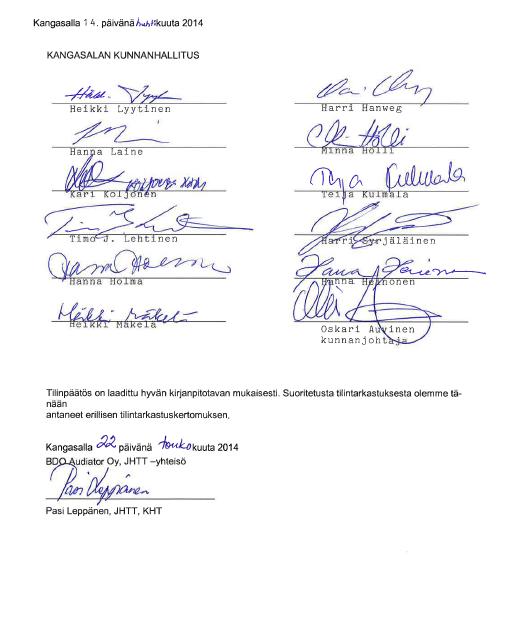 Kangasalla 14. päivänä huhtikuuta 2014
KANGASALAN KUNNANHALLITUS
Heikki Lyytinen
Harri Hanweg
Hanna Laine
Minna Holli
Kari Koljonen
Teija Kuimala
Timo J. Lehtinen
Harri Syrjäläinen
Hanna Holma
Hanna Heinonen
Heikki Mäkelä
Oskari Auvinen
kunnanjohtaja
Tilinpäätös on laadittu hyvän kirjanpitotavan mukaisesti. Suoritetusta tilintarkastuksesta olemme tä-
nään
antaneet erillisen tilintarkastuskertomuksen.
Kangasalla 22 päivänä toukokuuta 2014
BDO Audiator Oy, JHTT –yhteisö
Pasi Leppänen
Pasi Leppänen, JHTT, KHT